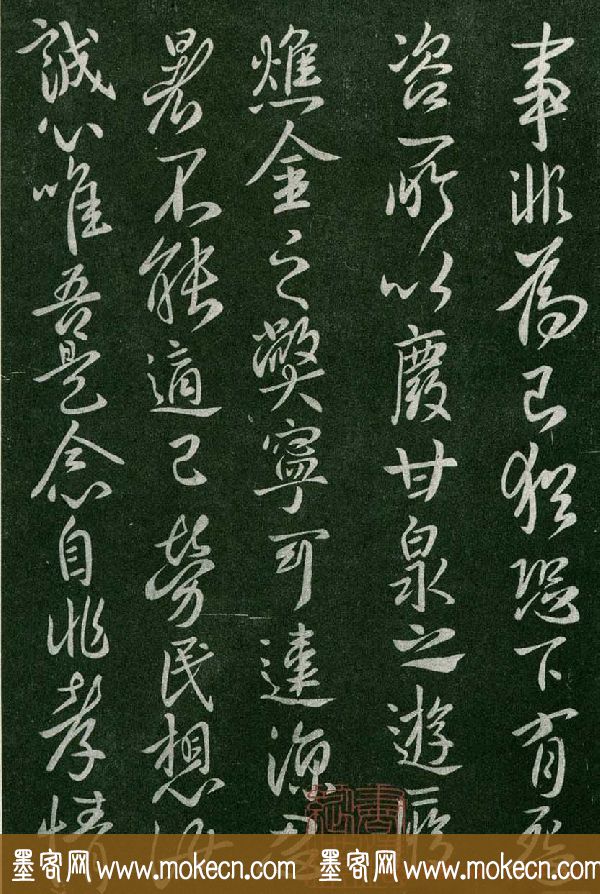 事非為己猶恐下有怨
咨所以廢甘泉之遊
燋金之弊寧可違涼
暑不能適己勞民想
誠心唯吾是念自非孝情
墨客网 www.mokecn.com 墨客网 www.mokecn.com